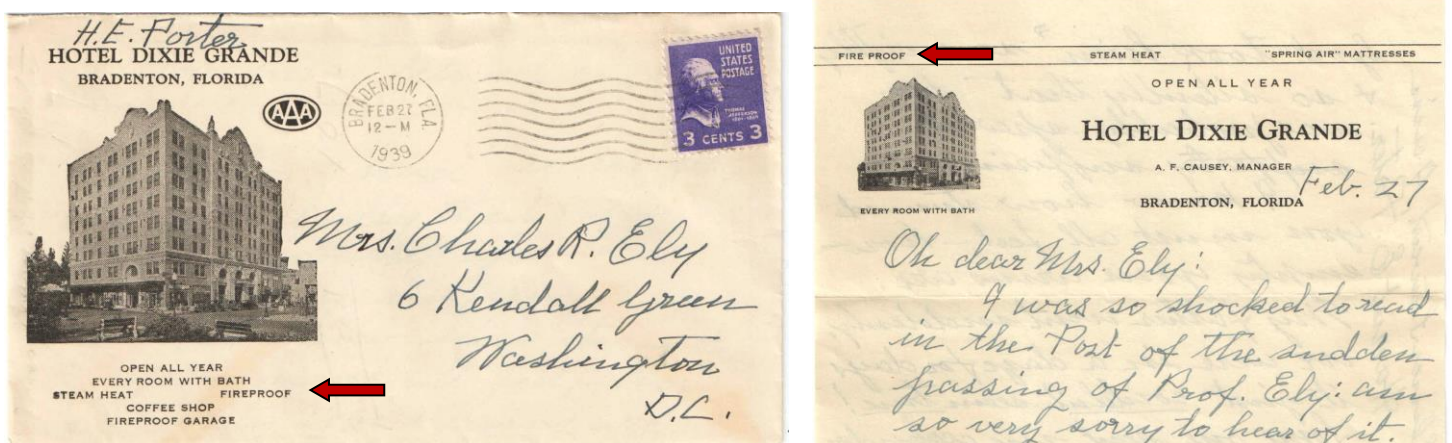 H.E. Porter
HOTEL DIXIE GRANDE
BRADENTON, FLORIDA
AAA
BRADENTON, FLA.
FEB 27
12-M
1939
UNITED
STATES
POSTAGE
THOMAS
JEFFERSON
1801-1809
3 CENTS 3
Mrs. Charles R. Ely
6 Kendall Green
Washington
D.C.
OPEN ALL YEAR
EVERY ROOM WITH BATH
STEAM HEAT FIREPROOF
COFFEE SHOP
FIREPROOF GARAGE
FIRE PROOF STEAM HEAT "SPRING AIR" MATTRESSES
OPEN ALL YEAR
HOTEL DIXIE GRANDE
A. F. CAUSEY, MANAGER
BRADENTON, FLORIDA
Feb. 27
EVERY ROOM WITH BATH
Oh dear Mrs. Ely:
I was so shocked to read
in the Post of the sudden
passing of Prof. Ely: am
so very sorry to hear of it.